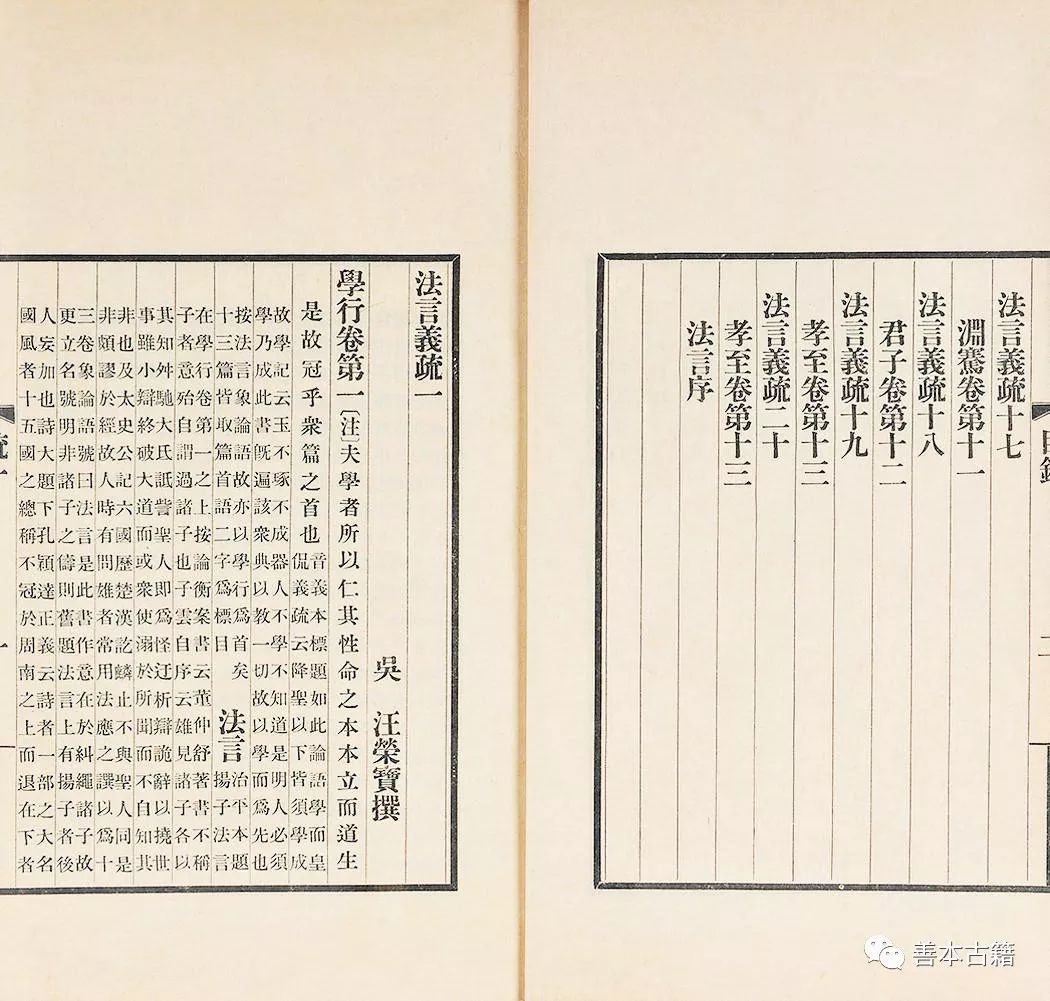 法言義疏十七
淵騫卷第十一
法言義疏十八
君子卷第十二
法言義疏十九
孝至卷第十三
法言義疏二十
孝至卷第十三
法言序
法言義疏一
吳 汪榮寶撰
學行卷第一〔注〕夫學者所以仁其性命之本本立而道生
是故冠乎衆篇之首也
音義本標題如此論語學而皇
侃義疏云降聖以下皆須學成
故學記云玉不琢不成器人不學不知道是明人必須
學乃成此書旣遍該衆典以教一切故以學而爲先也
按法言象論語故亦以學行爲首矣
十三篇皆取篇首語二字爲標目
法言
治平本題
揚子法言
在學行卷第一之上按論衡案書云董仲舒著書不稱
子者意殆自謂過諸子也子雲自序云雄見諸子各以
其知舛馳大氐詆訾聖人即爲怪迂析辯詭辭以撓世
事雖小辯終破大道而或衆使溺於所聞而不自知其
非也及太史公記六國歷楚漢訖麟止不與聖人同是
非頗謬於經故人時有問雄者常用法應之譔以爲十
三卷象論語號曰法言是此書作意在於糾繩諸子故
更立名號明非諸子之儔則舊題法言上有揚子者後
人妄加也詩大題下孔穎達正義云詩者一部之大名
國風者十五國之總稱不冠於周南之上而退在下者
善本古籍